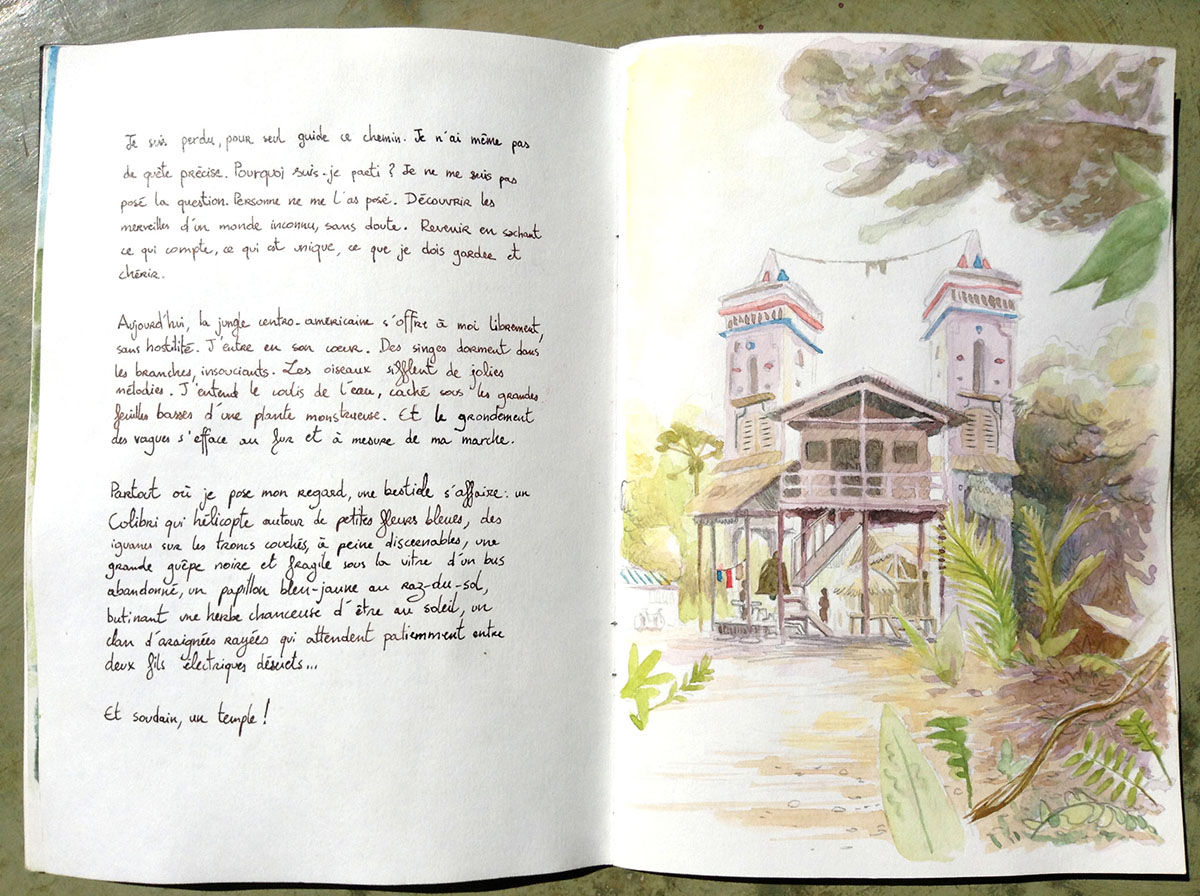 Je suis perdu, pour seul guide ce chemin. Je n'ai même pas
de quête précise. Pourquoi suis-je parti ? Je ne me suis pas
posé la question. Personne ne me l'as posé. Découvrir les
merveilles d'un monde inconnu, sans doute. Revenir en sachant
ce qui compte, ce qui est unique, ce que je dois garder et
chérir.
Aujourd'hui, la jungle centro-américaine s'offre à moi librement,
sans hostilité. J'entre en son cœur. Des singes dorment dans
les branches, insouciants. Les oiseaux sifflent de jolies
mélodies. J'entend le coulis de l'eau, caché sous les grandes
feuilles basses d'une plante monstrueuse. Et le grondement
des vagues s'efface au fur et à mesure de ma marche.
Partout où je pose mon regard, une bestiole s'affaire : un
Colibri qui hélicopte autour de petites fleurs bleues, des
iguanes sur les troncs couchés, à peine discernables, une
grande guêpe noire et fragile sous la vitre d'un bus
abandonné, un papillon bleu-jaune au raz-du-sol,
butinant une herbe chanceuse d'être au soleil, un
clan d'araignées rayées qui attendent patiemment entre
deux fils électriques désuets...
Et soudain, un temple !